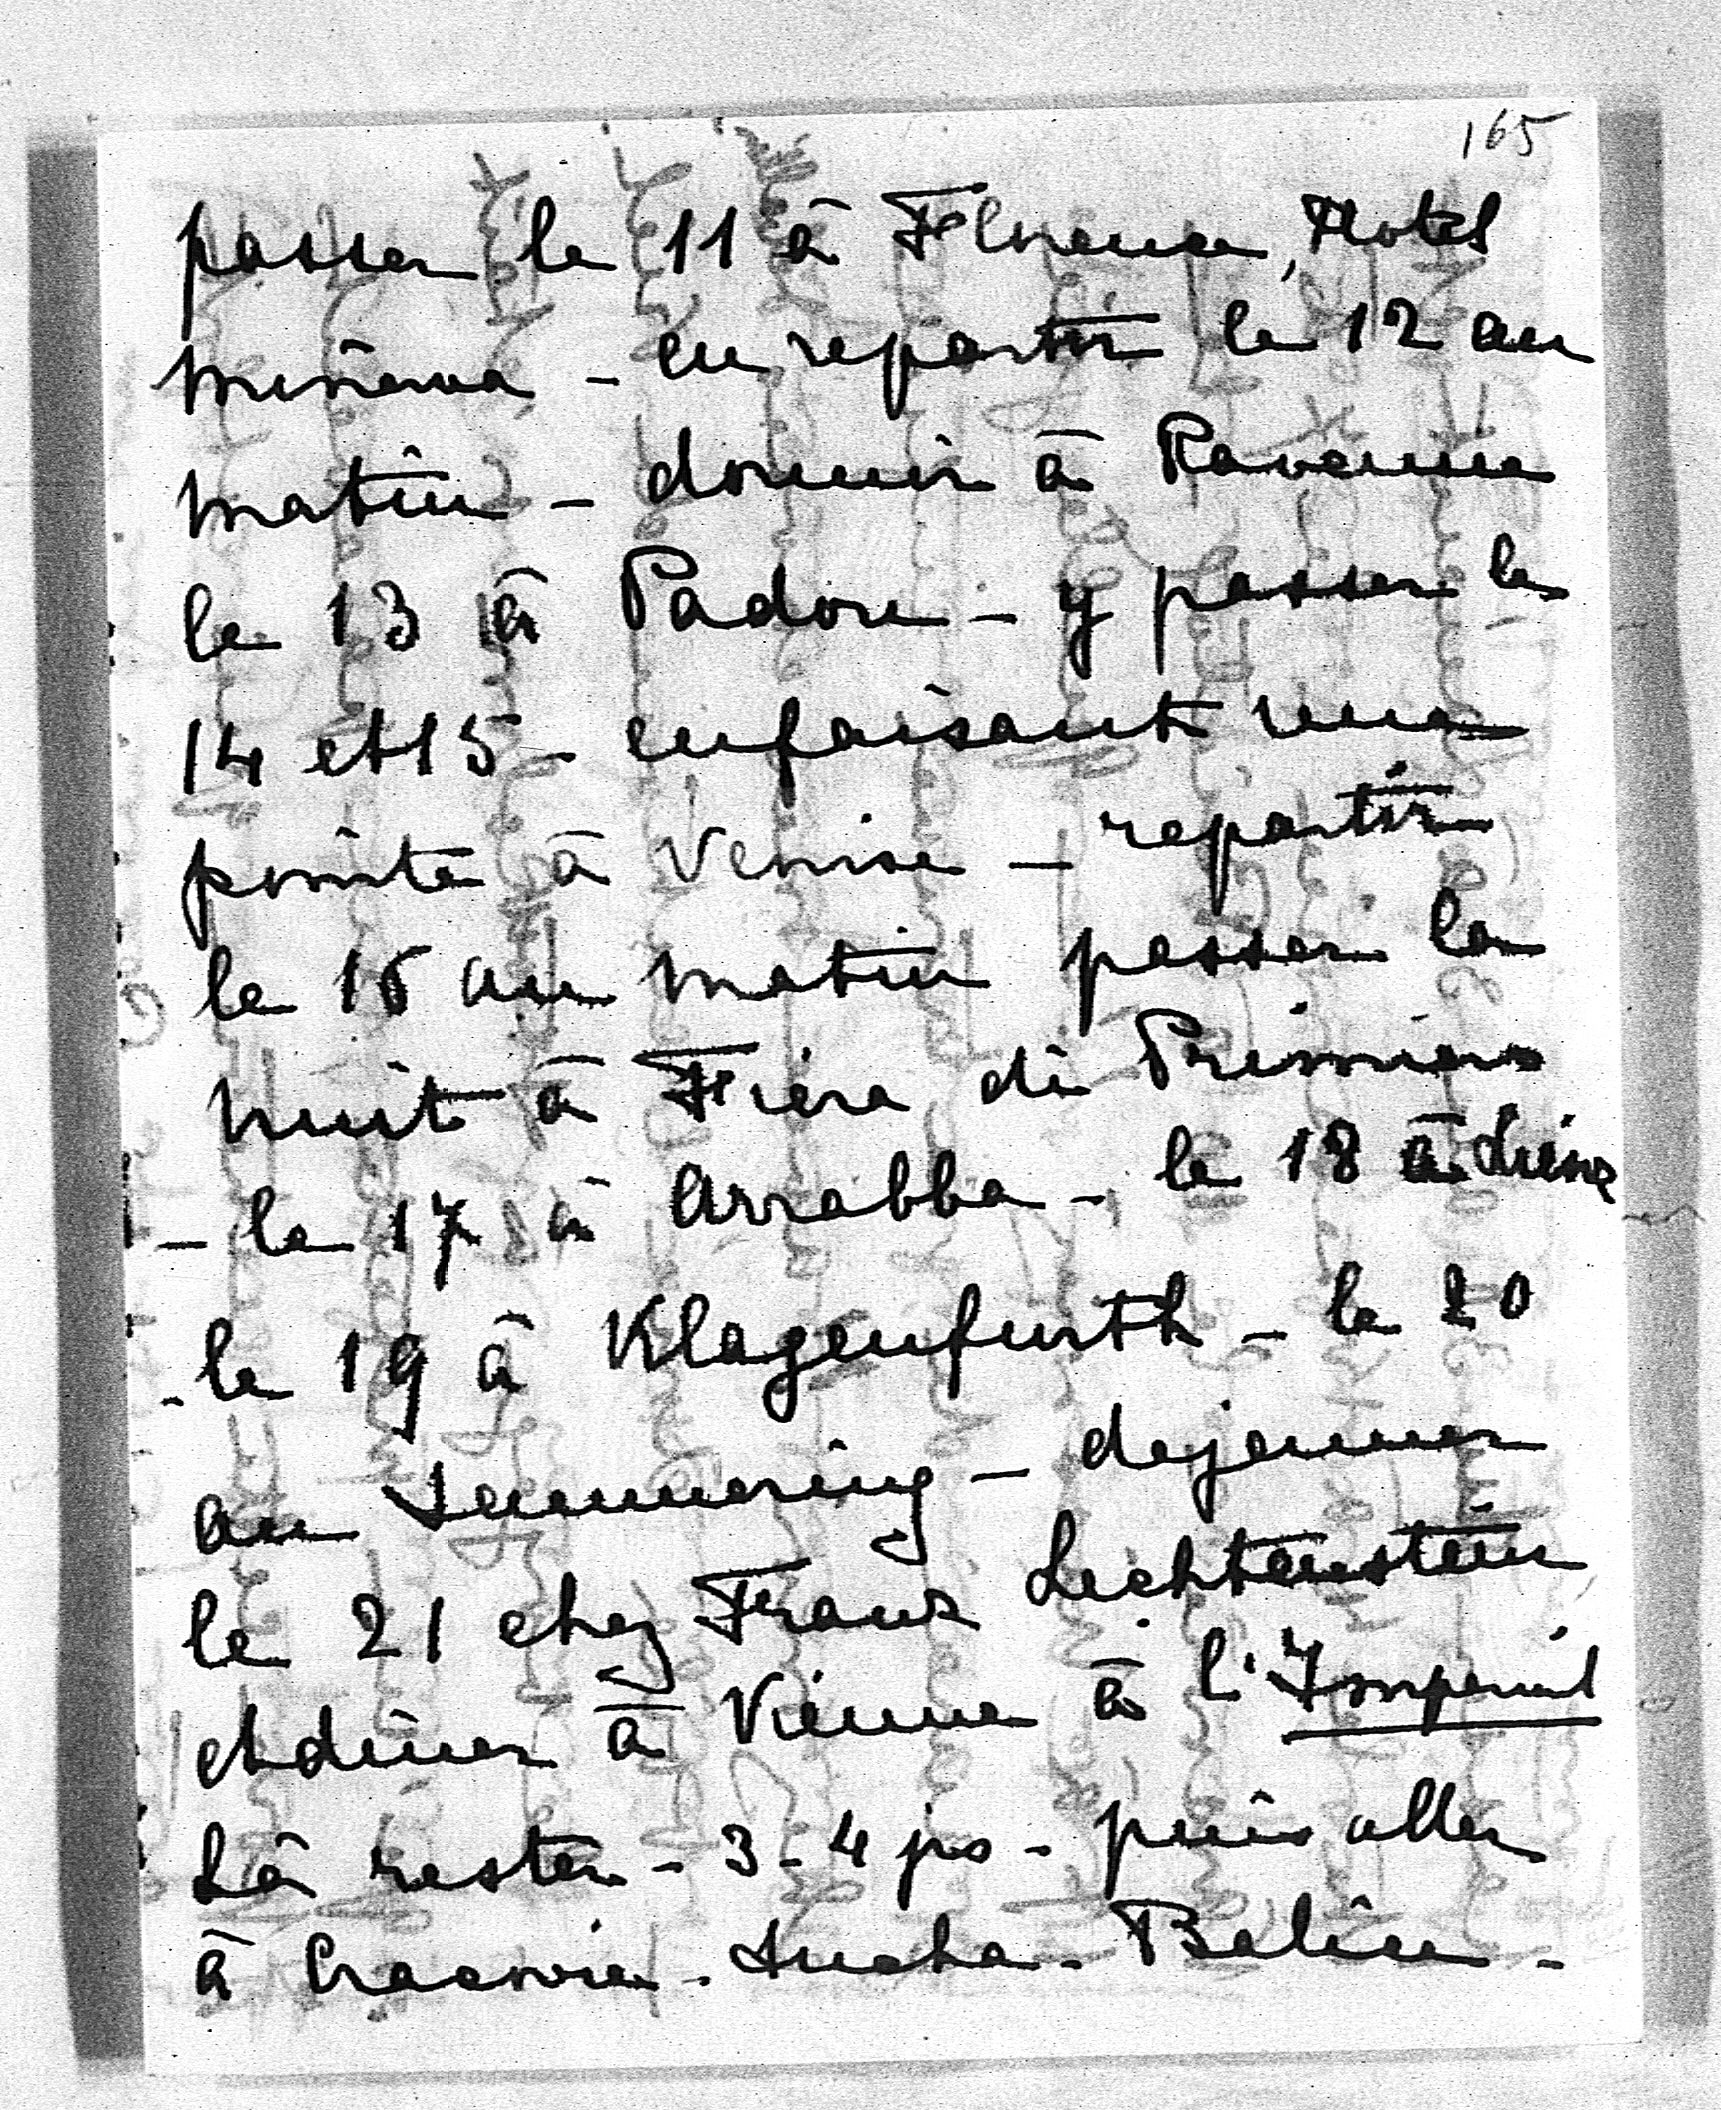 165
passer le 11 à Florence, Hotel
Minerva - en repartir le 12 au
matin - dormir à Ravenne
le 13 à Padoue - y passer le
14 et 15 - en faisant une
pointe à Venise - repartir
le 16 au matin passer la
nuit à Fiera di Primiero
- le 17 à Arrabba - le 18 à Lienz
- le 19 à Klagenfurth - le 20
au Semmering - dejeuner
le 21 chez Franz Liechtenstein
et diner à Vienne à l'Imperial
Là rester - 3 - 4 jrs - puis aller
à Cracovie - Sucha - Balice -